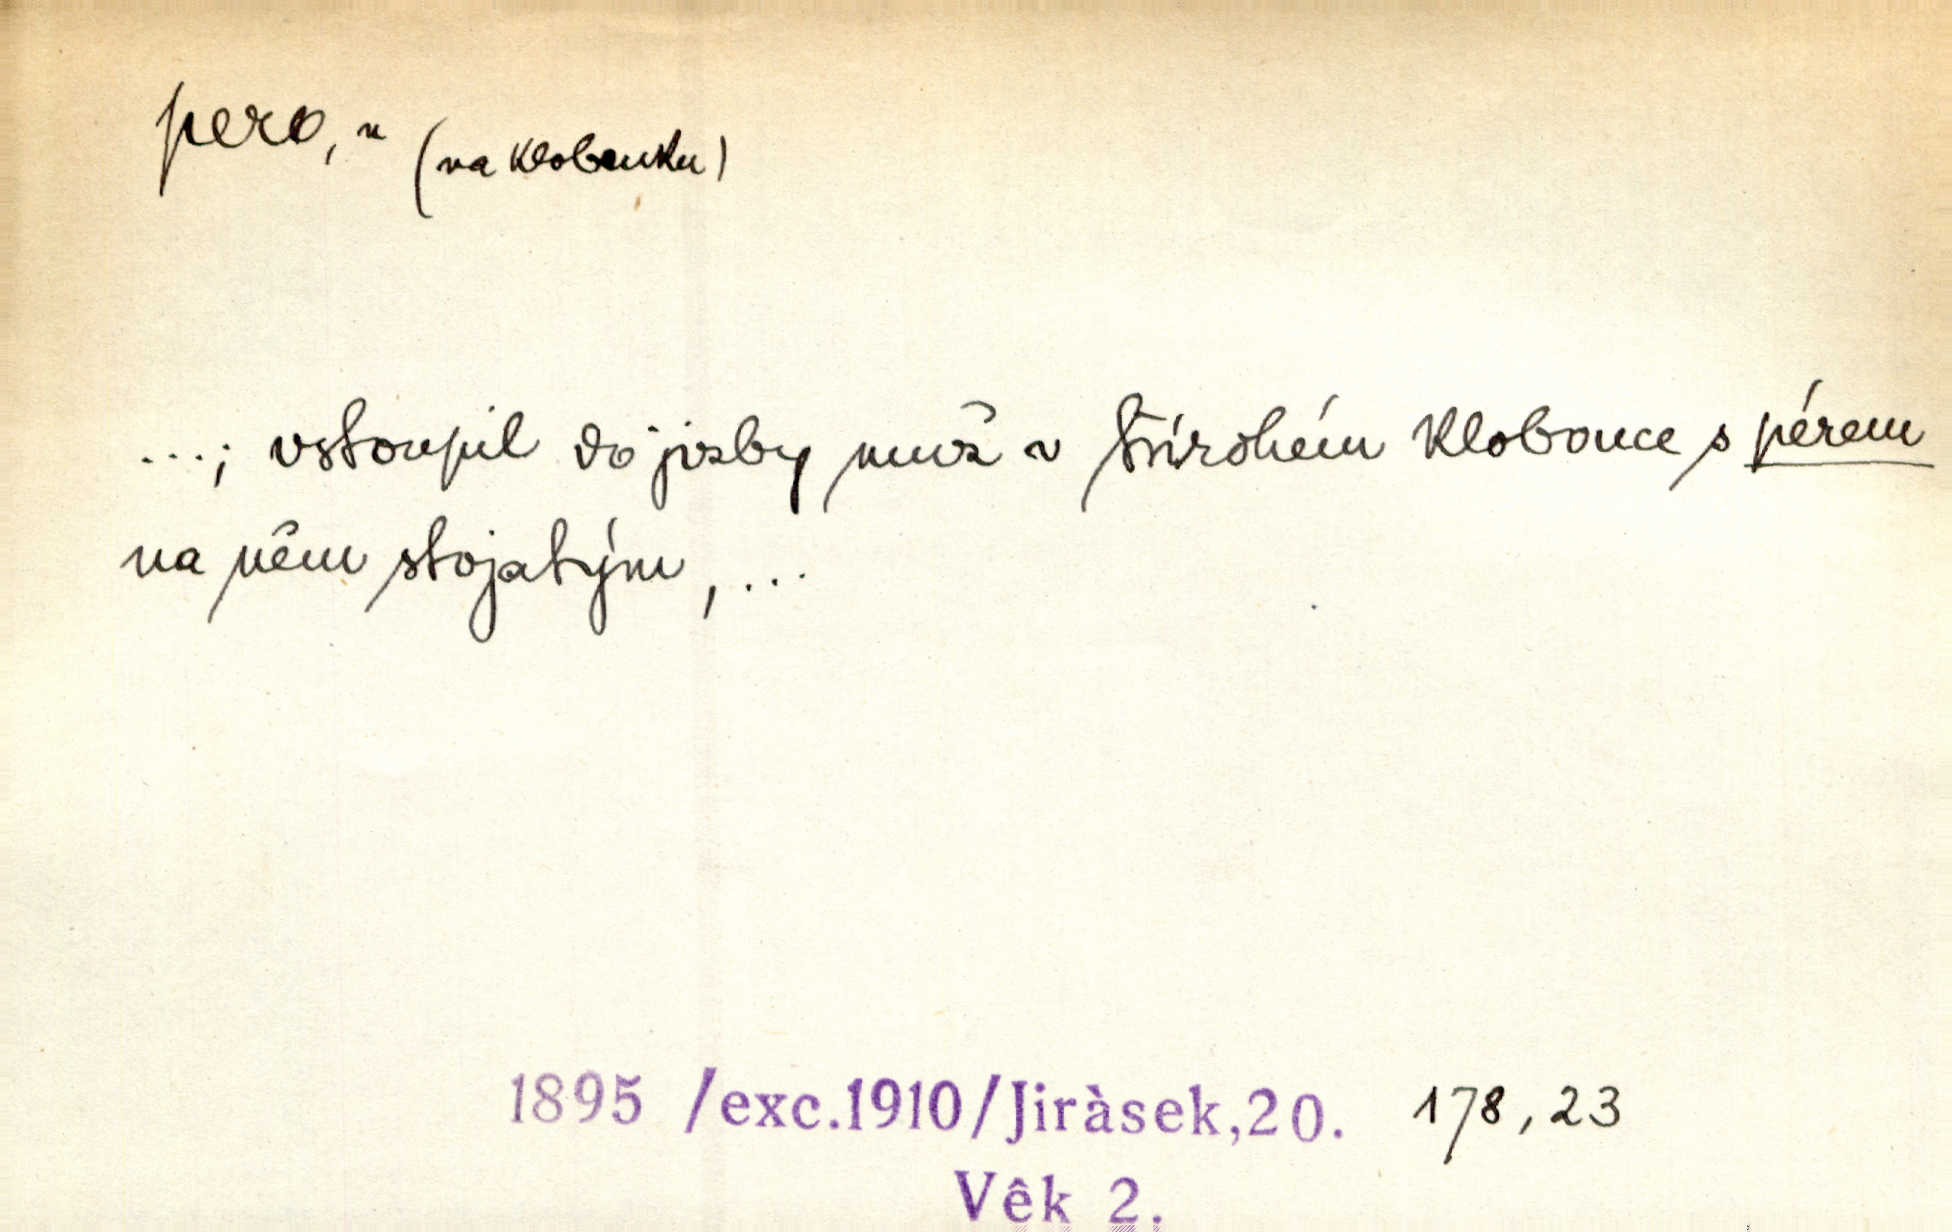 pero, n (na klobouku)
...; vstoupil do jizby muž v širokém klobouce s pérem
na něm stojatým, ...
1895 /exc.1910/Jiràsek,20. 178,23
Vêk 2.